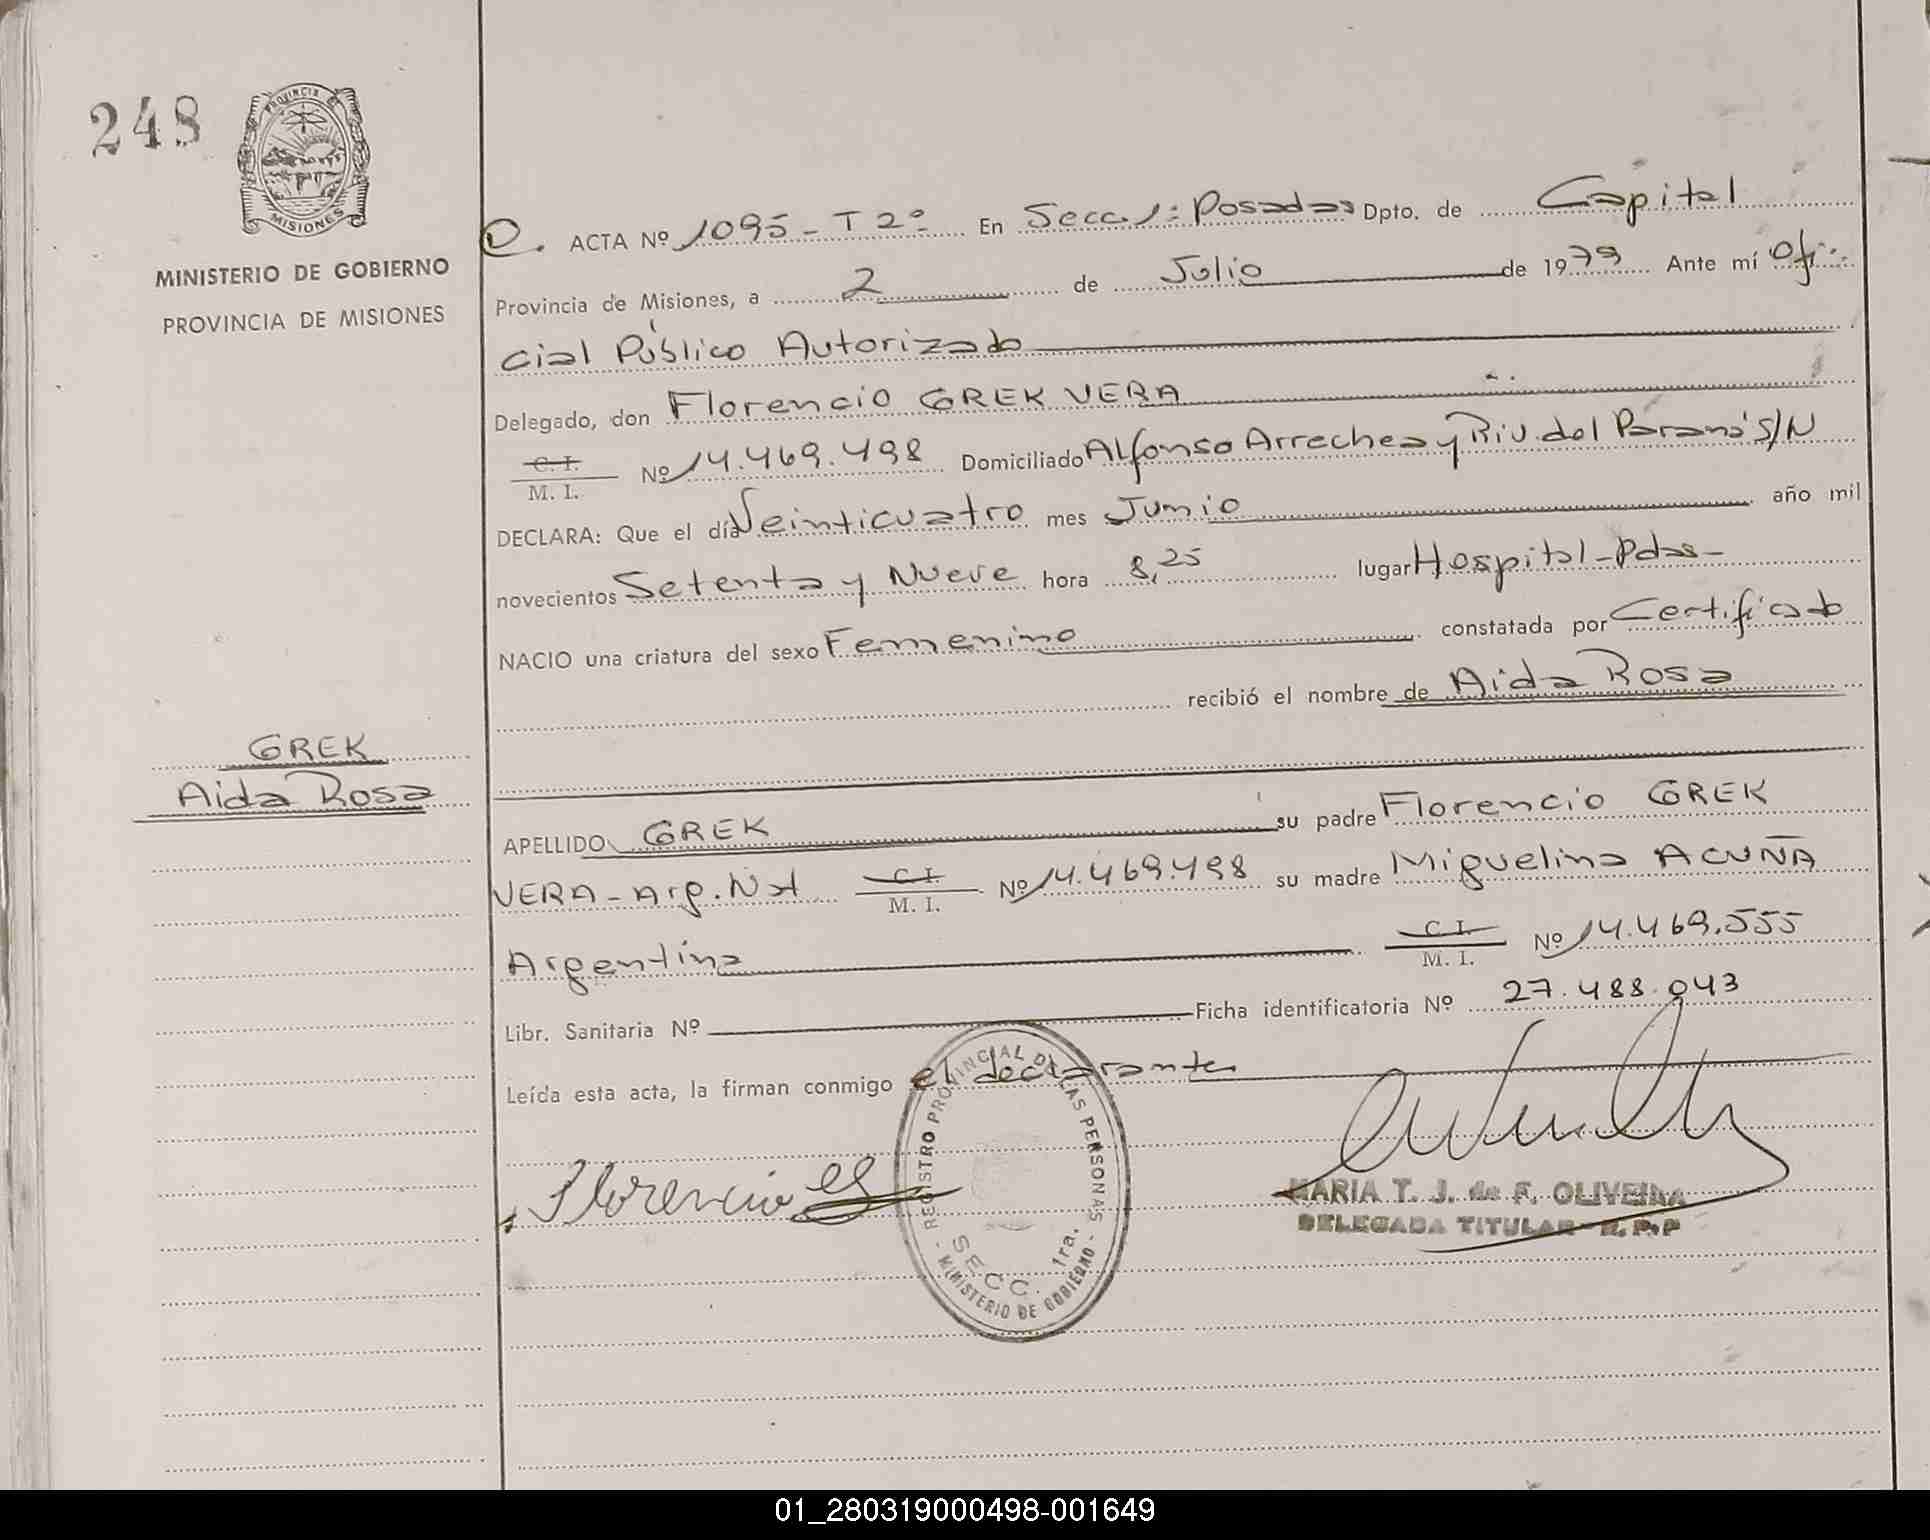 248
PROVINCIA DE
MISIONES
MINISTERIO DE GOBIERNO
PROVINCIA DE MISIONES
ACTA Nº 1095 - T 2º En Secc. 1ª Posadas Dpto. de Capital
Provincia de Misiones, a 2 de Julio de 1979 Ante mí Ofi-
cial Público Autorizado
Delegado, don Florencio GREK VERA
C. I.
M. I. Nº 14.469.498 Domiciliado Alfonso Arrechea y Riv. del Paraná S/N
DECLARA: Que el día Veinticuatro mes Junio año mil
novecientos Setenta y Nueve hora 8,25 lugar Hospital - Pdas -
NACIO una criatura del sexo Femenino constatada por Certificado
recibió el nombre de Aida Rosa
GREK
Aida Rosa
APELLIDO GREK su padre Florencio GREK
VERA - Arg. Nat C. I.
M. I. Nº 14.469.498 su madre Miguelina ACUÑA
Argentina C. I.
M. I. Nº 14.469.555
Libr. Sanitaria Nº Ficha identificatoria Nº 27.488.043
Leída esta acta, la firman conmigo el declarante
Florencio
REGISTRO PROVINCIAL DE LAS PERSONAS
SECC. 1ra.
- MINISTERIO DE GOBIERNO -
MARIA T. J. de F. OLIVEIRA
DELEGADA TITULAR - R. P. P
01_280319000498-001649